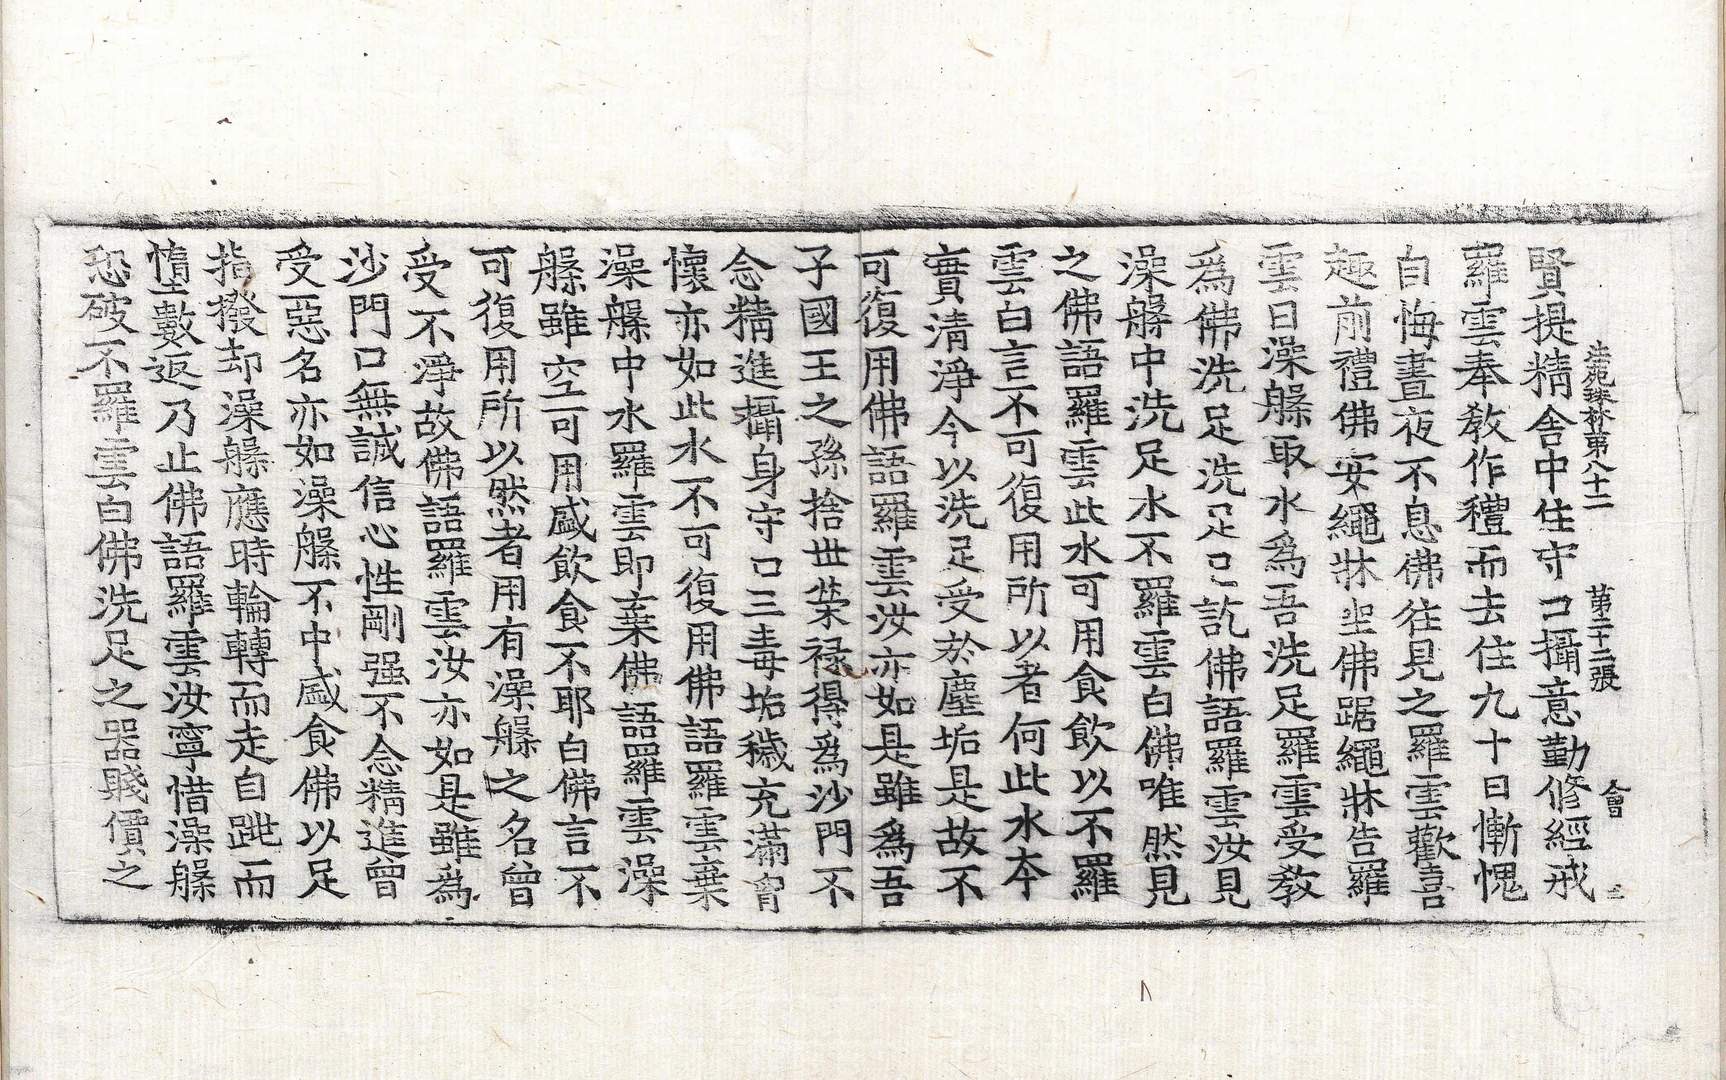 法苑珠林第八十二　第二十二張　會
賢提精舍中住守口攝意勤修經戒
羅雲奉教作禮而去住九十日慚愧
自悔晝夜不息佛往見之羅雲歡喜
趣前禮佛安繩牀坐佛踞繩牀告羅
雲曰澡槃取水爲吾洗足羅雲受教
爲佛洗足洗足已訖佛語羅雲汝見
澡槃中洗足水不羅雲白佛唯然見
之佛語羅雲此水可用食飲以不羅
雲白言不可復用所以者何此水本
實清淨今以洗足受於塵垢是故不
可復用佛語羅雲汝亦如是雖爲吾
子國王之孫捨世榮祿得爲沙門不
念精進攝身守口三毒垢穢充滿胷
懷亦如此水不可復用佛語羅雲棄
澡槃中水羅雲即棄佛語羅雲澡
槃雖空可用盛飲食不耶白佛言不
可復用所以然者用有澡槃之名曾
受不淨故佛語羅雲汝亦如是雖爲
沙門口無誠信心性剛强不念精進曾
受惡名亦如澡槃不中盛食佛以足
指撥却澡槃應時輪轉而走自跳而
墮數返乃止佛語羅雲汝寧惜澡槃
恐破不羅雲白佛洗足之器賤價之